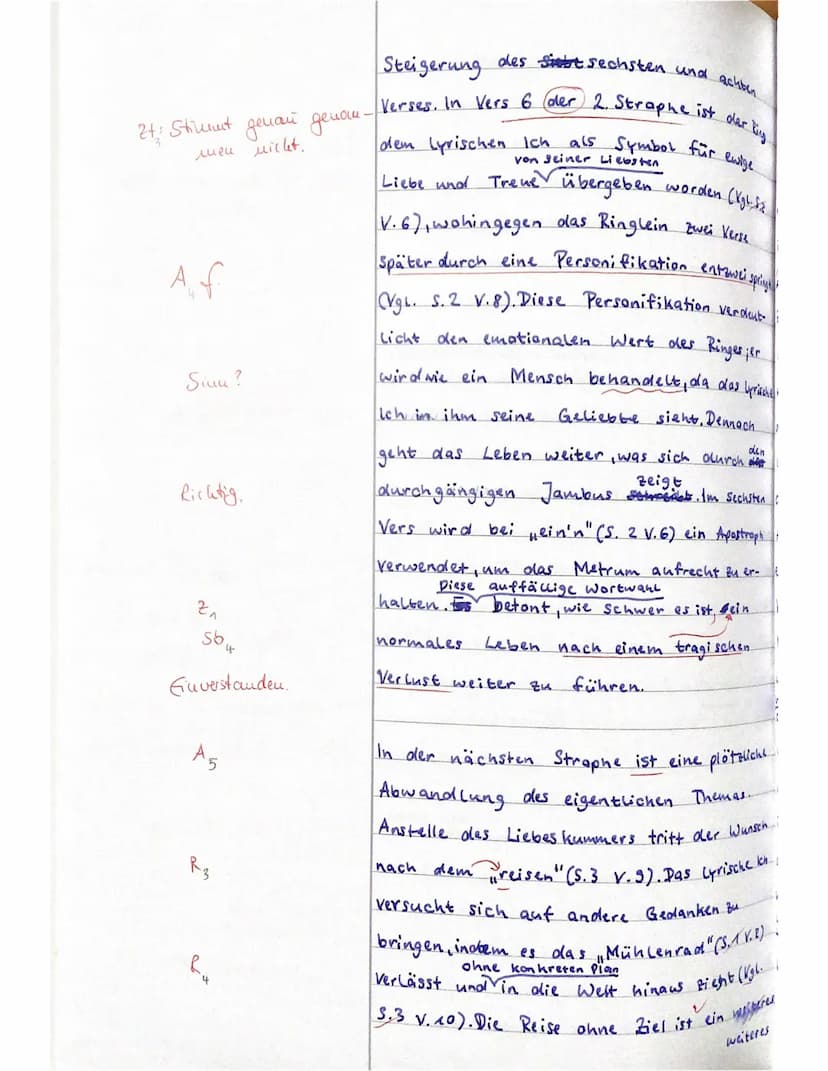 Steigerung des sechsten und achten
Zt3: Stimmt genau genom-
men nicht.
Verses. In Vers 6 der 2. Strophe ist der Ring
dem lyrischen Ich als Symbol für ewige
von seiner Liebsten
Liebe und Treue übergeben worden (Vgl. S.2
V.6), wohingegen das Ringlein zwei Verse
später durch eine Personifikation entzwei springt
A4 f
(Vgl. S.2 V.8). Diese Personifikation verdeut-
licht den emotionalen Wert des Ringes; er
Sinn?
wird wie ein Mensch behandelt, da das lyrische
Ich in ihm seine Geliebte sieht. Dennoch
geht das Leben weiter, was sich durch den
zeigt
Richtig.
durchgängigen Jambus . Im sechsten
Vers wird bei „ein'n" (S. 2 V.6) ein Apostroph
verwendet, um das Metrum aufrecht zu er-
Diese auffällige Wortwahl
Z1
halten. betont, wie schwer es ist, ein
Sb4
normales Leben nach einem tragischen
Einverstanden.
Verlust weiter zu führen.
A5
In der nächsten Strophe ist eine plötzliche
Abwandlung des eigentlichen Themas.
Anstelle des Liebeskummers tritt der Wunsch
R3
nach dem „reisen" (S.3 V.9). Das lyrische Ich
versucht sich auf andere Gedanken zu
bringen, indem es das „Mühlenrad" (S.1 V.2)
ohne konkreten Plan
R4
verlässt und in die Welt hinaus zieht (Vgl.
S.3 V.10). Die Reise ohne Ziel ist ein
weiteres